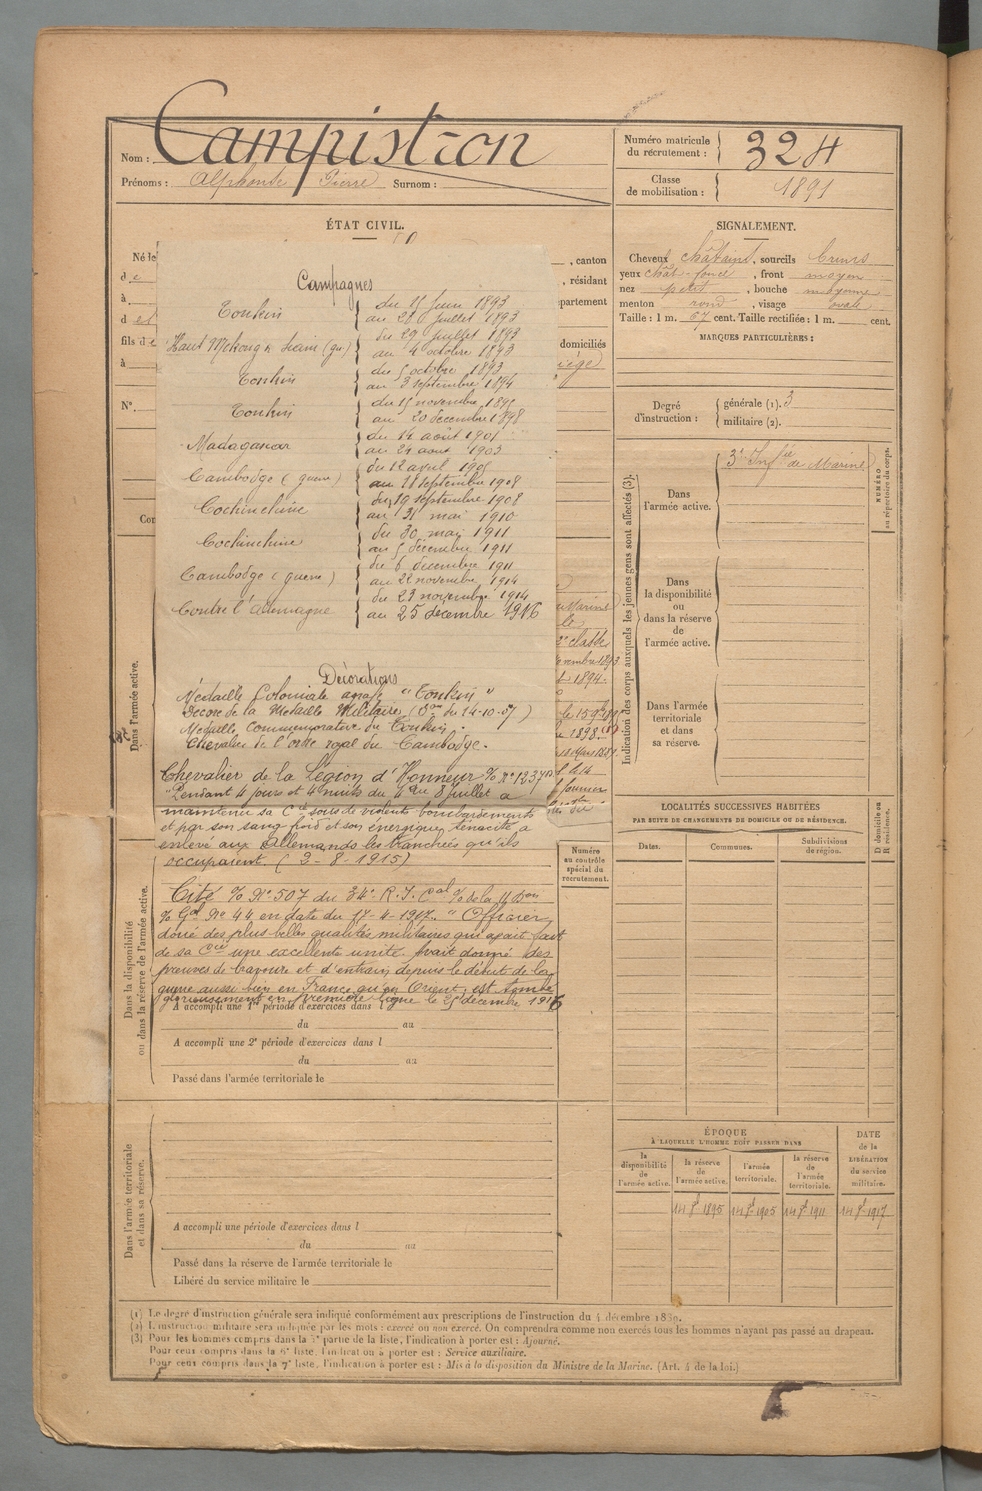 Nom : Campistron
Prénoms : Alphonse Pierre Surnom :
Numéro matricule du recrutement : 324
Classe de mobilisation : 1891
ÉTAT CIVIL.
Né le
d e
à
d et
fils de
à
N°
Cor
, canton
, résidant
département
domiciliés
iége)
SIGNALEMENT.
Cheveux châtains, sourcils bruns
yeux chât-foncé, front moyen
nez petit, bouche moyenne
menton rond, visage ovale
Taille : 1 m. 67 cent. Taille rectifiée : 1 m. cent.
MARQUES PARTICULIÈRES :
Degré d'instruction : générale (1). 3
militaire (2).
Campagnes
Tonkin du 15 juin 1893
au 28 juillet 1893
Haut Mékong & Siam (gu.) du 29 juillet 1893
au 4 octobre 1893
Tonkin du 5 octobre 1893
au 3 septembre 1894
Tonkin du 15 novembre 1895
au 20 décembre 1898
Madagascar du 14 août 1901
au 21 août 1903
Cambodge (guerre) du 12 avril 1905
au 18 septembre 1908
Cochinchine du 19 septembre 1908
au 31 mai 1910
Cochinchine du 30 mai 1911
au 5 décembre 1911
Cambodge (guerre) du 6 décembre 1911
au 22 novembre 1914
Contre l'Allemagne du 23 novembre 1914
au 25 décembre 1916
Décorations
Médaille Coloniale agrafe "Tonkin"
Décoré de la Médaille Militaire (Don du 14-10-07)
Médaille Commémorative du Tonkin
Chevalier de l'ordre royal du Cambodge.
Chevalier de la Légion d'Honneur % N° 1237
"Pendant 4 jours et 4 nuits du 4 au 8 juillet a
maintenu sa Cie sous de violents bombardements
et par son sang froid et son énergique ténacité a
enlevé aux Allemands les tranchées qu'ils
occupaient. (3-8-1915)
Cité % N° 507 du 34e R.I.Cal % de la 11 Don
% Gal No 44 en date du 17-4-1917. "Officier
doué des plus belles qualités militaires qui avait fait
de sa Cie une excellente unité. Avait donné des
preuves de bravoure et d'entrain depuis le début de la
guerre aussi bien en France qu'en Orient, est tombé
glorieusement en première ligne le 25 décembre 1916
Dans l'armée active.
Dans la disponibilité ou dans la réserve de l'armée active.
A accompli une 1re période d'exercices dans l
du au
A accompli une 2e période d'exercices dans l
du au
Passé dans l'armée territoriale le
Dans l'armée territoriale et dans sa réserve.
A accompli une période d'exercices dans l
du au
Passé dans la réserve de l'armée territoriale le
Libéré du service militaire le
Indication des corps auxquels les jeunes gens sont affectés (3).
Dans l'armée active.
3e Infie de Marine
Dans la disponibilité ou dans la réserve de l'armée active.
Dans l'armée territoriale et dans sa réserve.
NUMÉRO au répertoire du corps.
Numéro au contrôle spécial du recrutement.
LOCALITÉS SUCCESSIVES HABITÉES
PAR SUITE DE CHANGEMENTS DE DOMICILE OU DE RÉSIDENCE.
Dates. Communes. Subdivisions de région.
D domicile ou R résidence.
ÉPOQUE
À LAQUELLE L'HOMME DOIT PASSER DANS
la disponibilité de l'armée active.
la réserve de l'armée active.
l'armée territoriale.
la réserve de l'armée territoriale.
DATE de la LIBÉRATION du service militaire.
14 8bre 1895 14 8bre 1905 14 8bre 1911 14 8bre 1917
(1) Le degré d'instruction générale sera indiqué conformément aux prescriptions de l'instruction du 4 décembre 1889.
(2) L'instruction militaire sera indiquée par les mots : exercé ou non exercé. On comprendra comme non exercés tous les hommes n'ayant pas passé au drapeau.
(3) Pour les hommes compris dans la 5e partie de la liste, l'indication à porter est : Ajourné.
Pour ceux compris dans la 6e liste, l'indication à porter est : Service auxiliaire.
Pour ceux compris dans la 7e liste, l'indication à porter est : Mis à la disposition du Ministre de la Marine. (Art. 4 de la loi.)